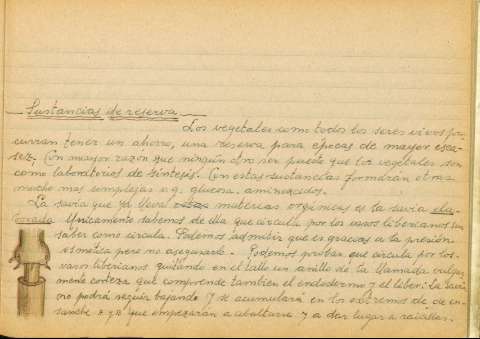 Sustancias de reserva
Los vegetales como todos los seres vivos pro-
curran tener un ahorro, una reserva para epocas de mayor esca-
sez, Con mayor razon que ningún otro ser puesto que los vegetales son
como laboratorios de síntesis. Con estas sustancias formarán otras
mucho mas complejas v.g. glucosa, aminoacidos.
La savia que ya lleva estas materias orgánicas es la savia ela-
borada. Unicamente sabemos de ella que circula por los vasos liberianos sin
saber como circula. Podemos admitir que es gracias a la presión
osmótica pero no asegurarlo. Podemos probar que circula por los
vasos liberianos quitando en el tallo un anillo de la llamada vulgar-
mente corteza que comprende tambien el endodermo y el liber. La savia
no podrá seguir bajando y se acumulará en los extremos de
que empezarán a abultarse y a dar lugar a raicillas.